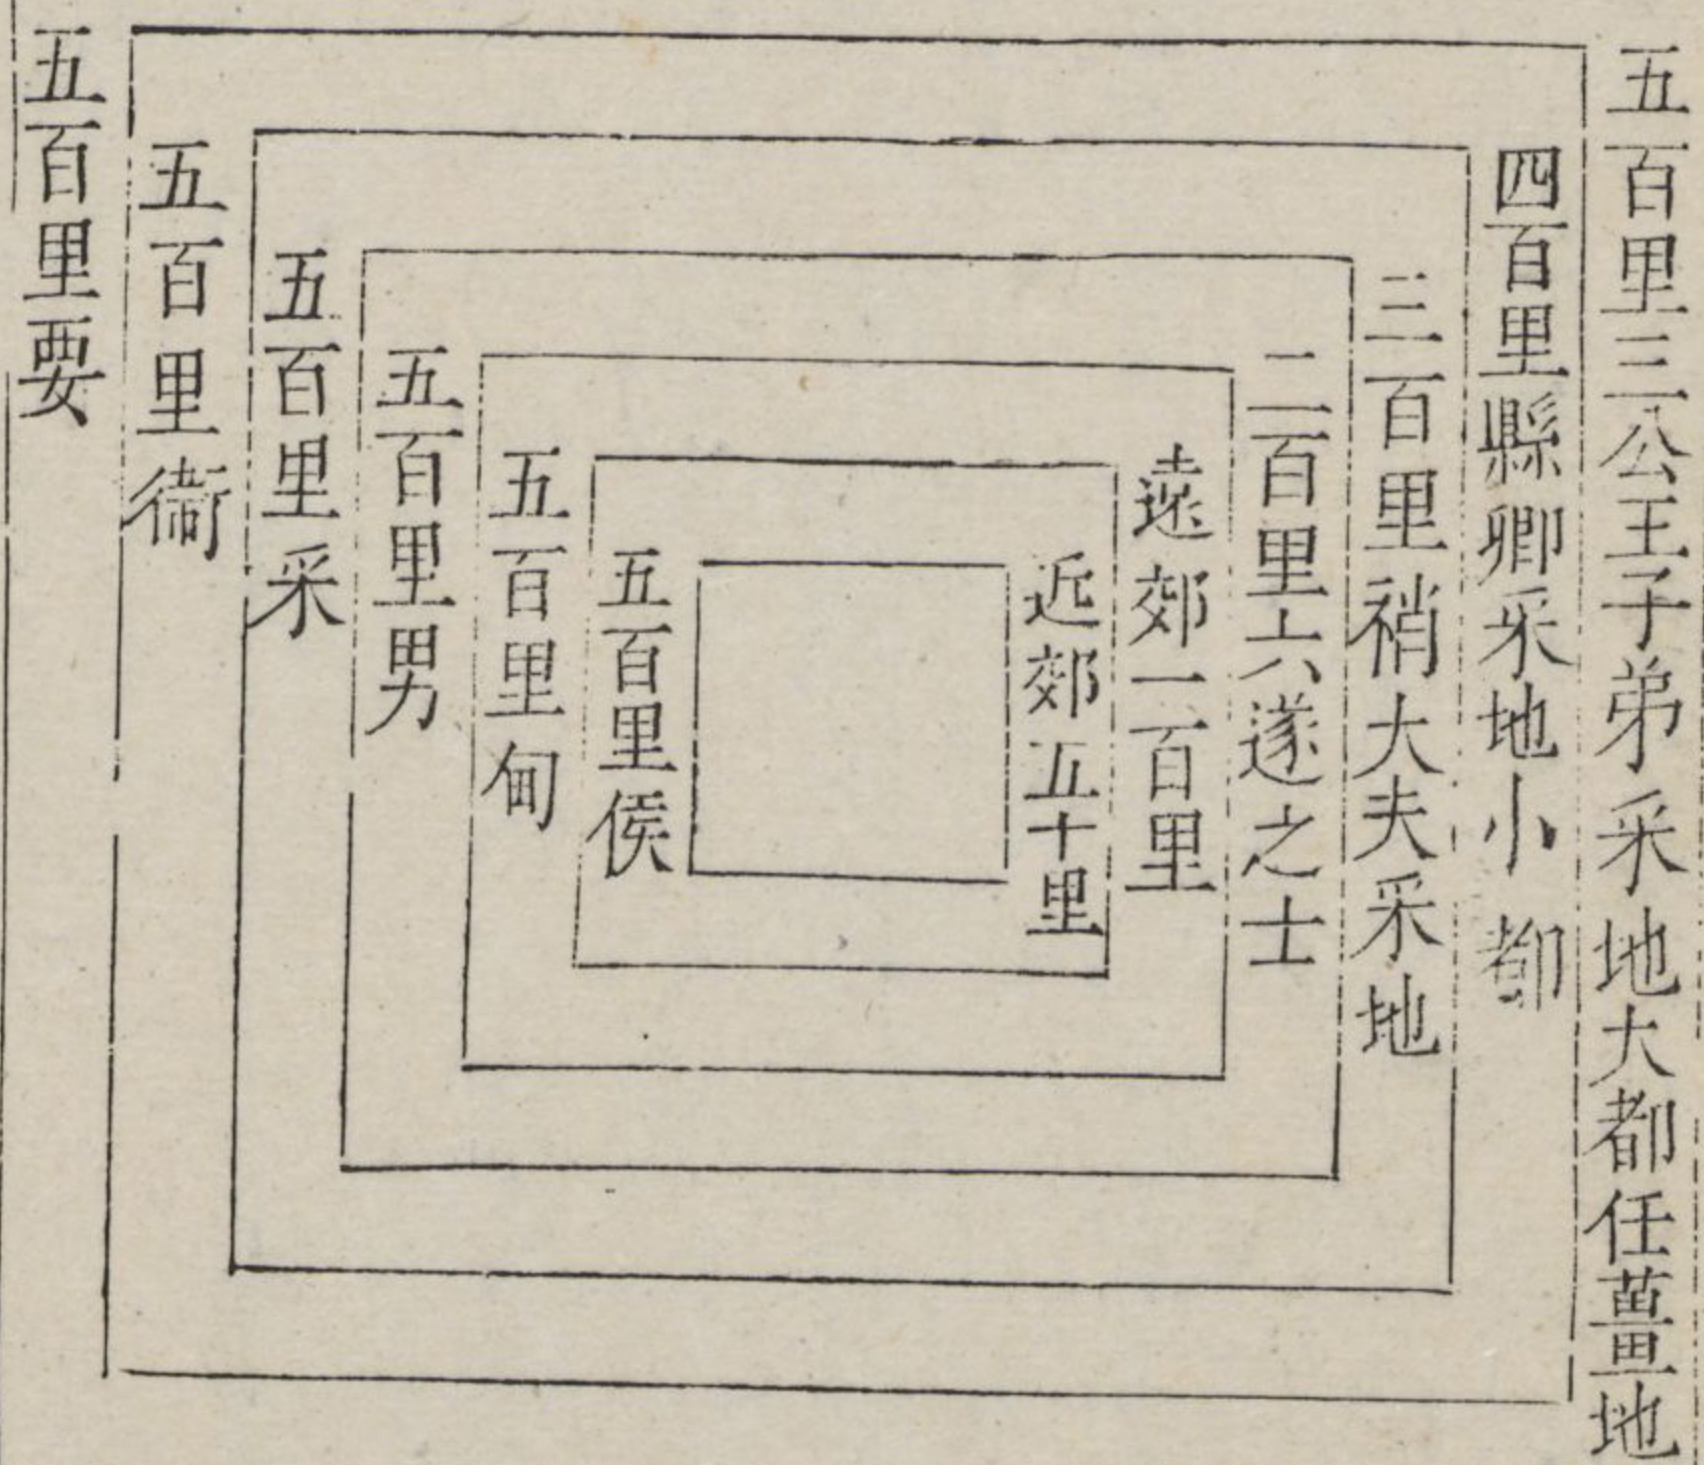 五百里三公王子弟采地大都任畺地
四百里縣卿采地小都
三百里稍大夫采地
二百里六遂之士
遠郊一百里
近郊五十里
五百里侯
五百里甸
五百里男
五百里采
五百里衞
五百里要